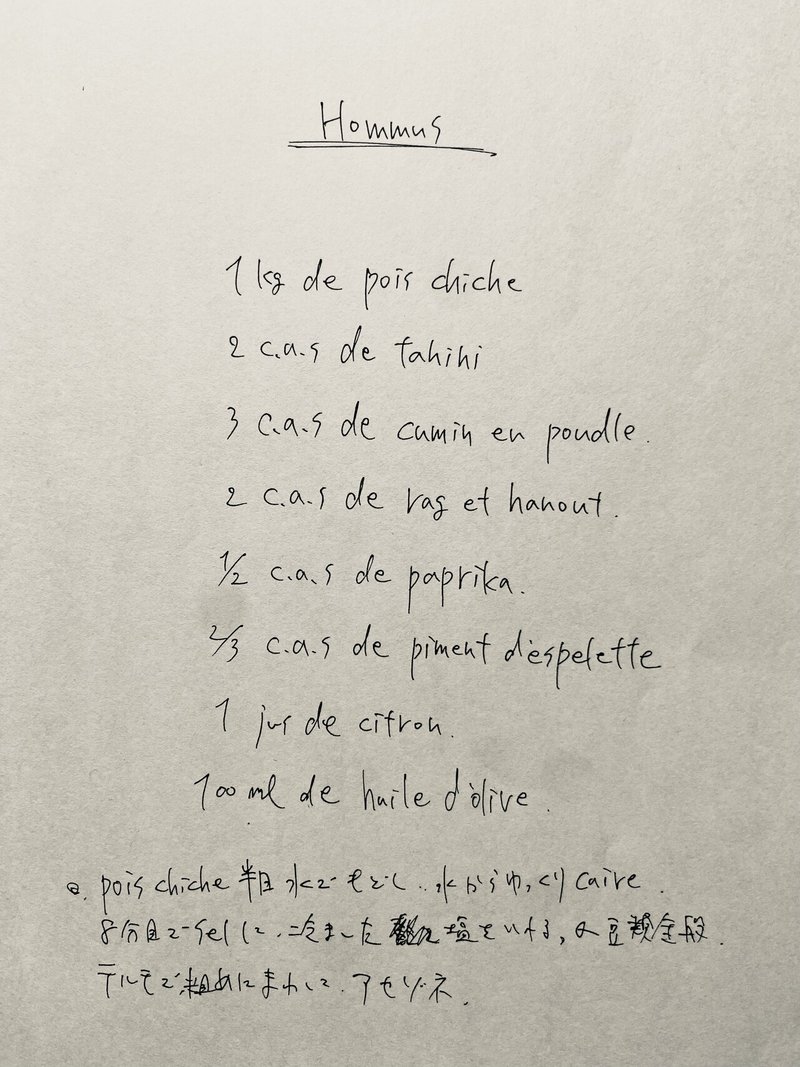 Hommus
1 kg de pois chiche
2 c.a.s de tahini
3 c.a.s de cumin en poudle.
2 c.a.s de rag et hanout.
1/2 c.a.s de paprika.
2/3 c.a.s de piment d'espelette
1 jus de citron.
100 ml de huile d'olive.
pois chiche 水でもどし.. 水からゆっくり caire.
8分目で sel して、 塩をいれる, 豆類全般.
テルモで粗めにまわして. アセゾネ.